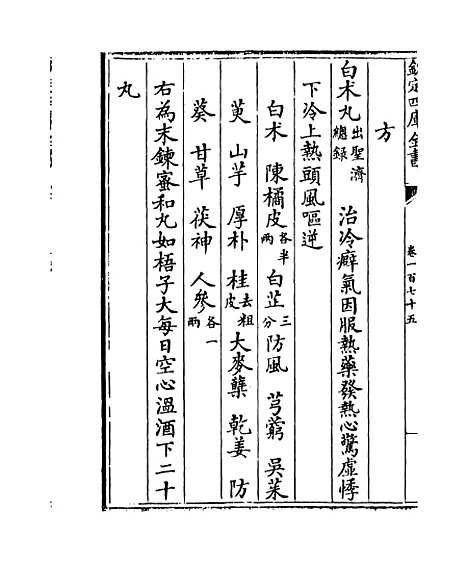 欽定四庫全書
卷一百七十五
方
白朮丸出聖濟總録　治冷癖氣因服熱藥發熱心驚虛悸
下冷上熱頭風嘔逆
白朮　陳橘皮各半兩　白芷三分　防風　芎藭　吳茱
萸　山芋　厚朴　桂去粗皮　大麥櫱　乾姜　防
葵　甘草　茯神　人參各一兩
右為末鍊蜜和丸如梧子大每日空心溫酒下二十
丸